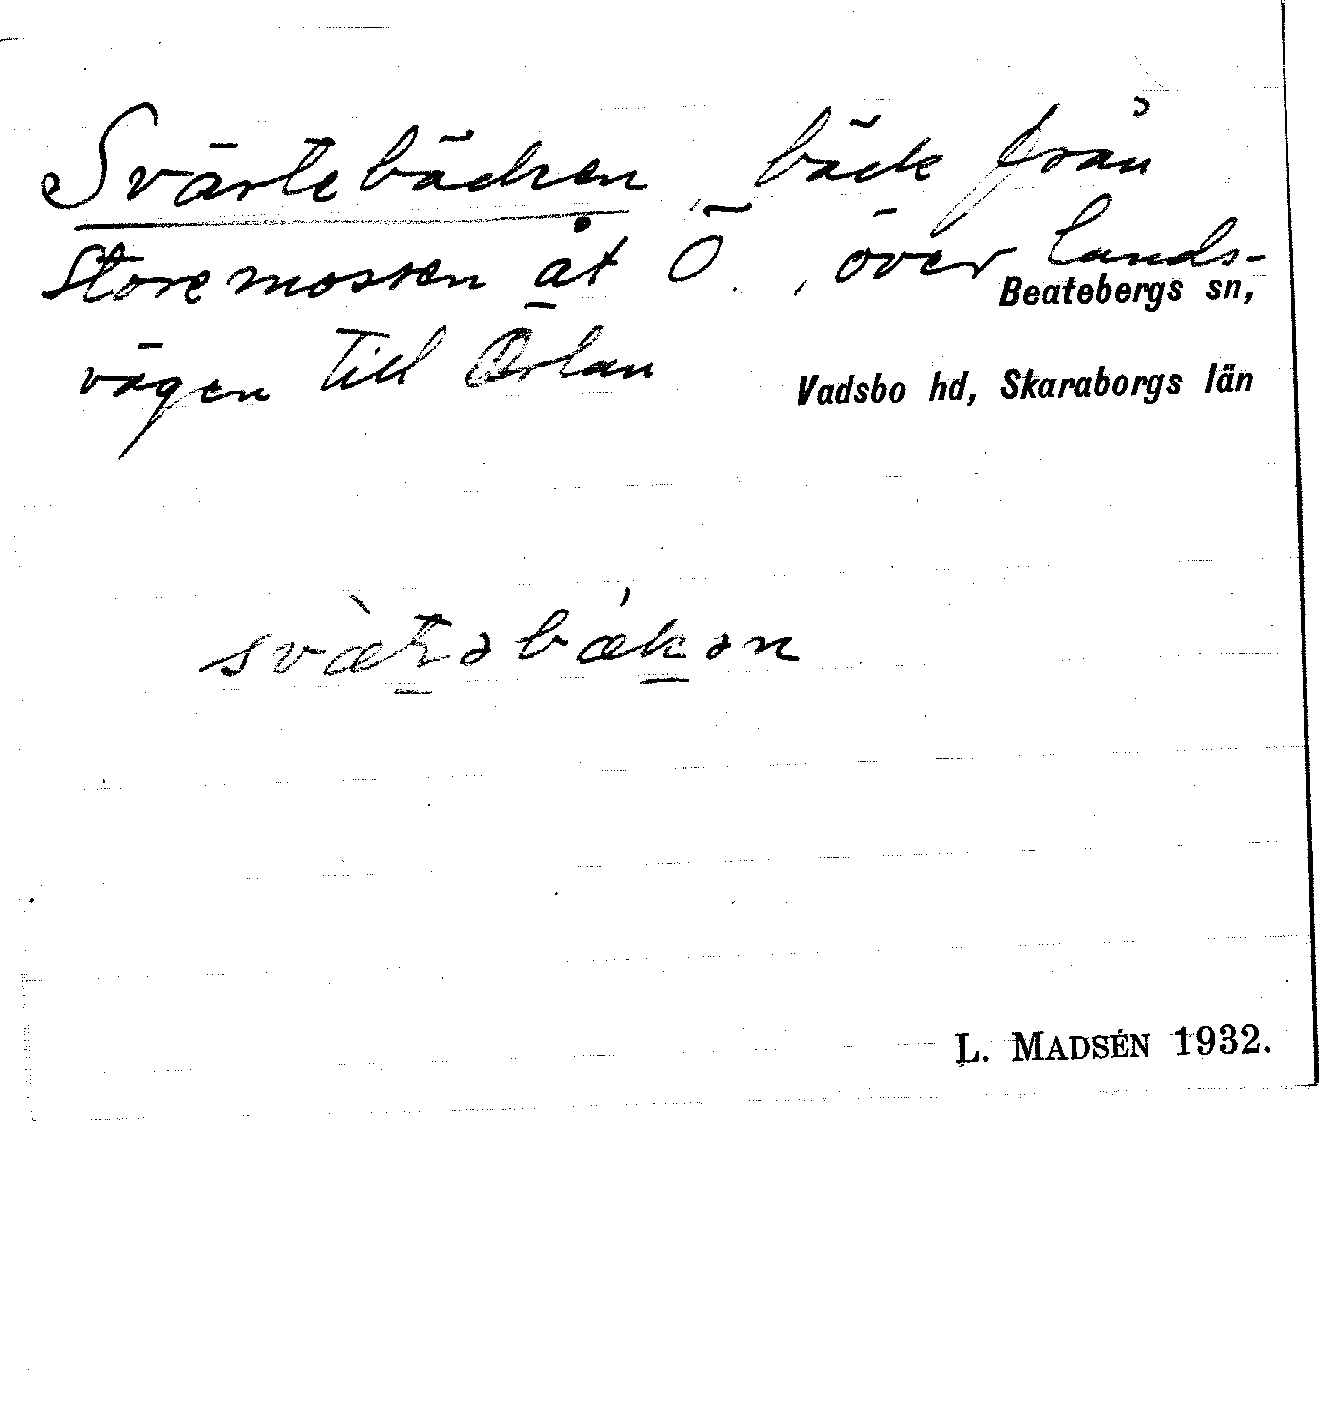 Svärtebäcken, bäck från
Storemossen åt Ö., över lands-
Beatebergs sn,
vägen till Örlan
Vadsbo hd, Skaraborgs län
svæ̀təbǽkən
L. MADSÉN 1932.